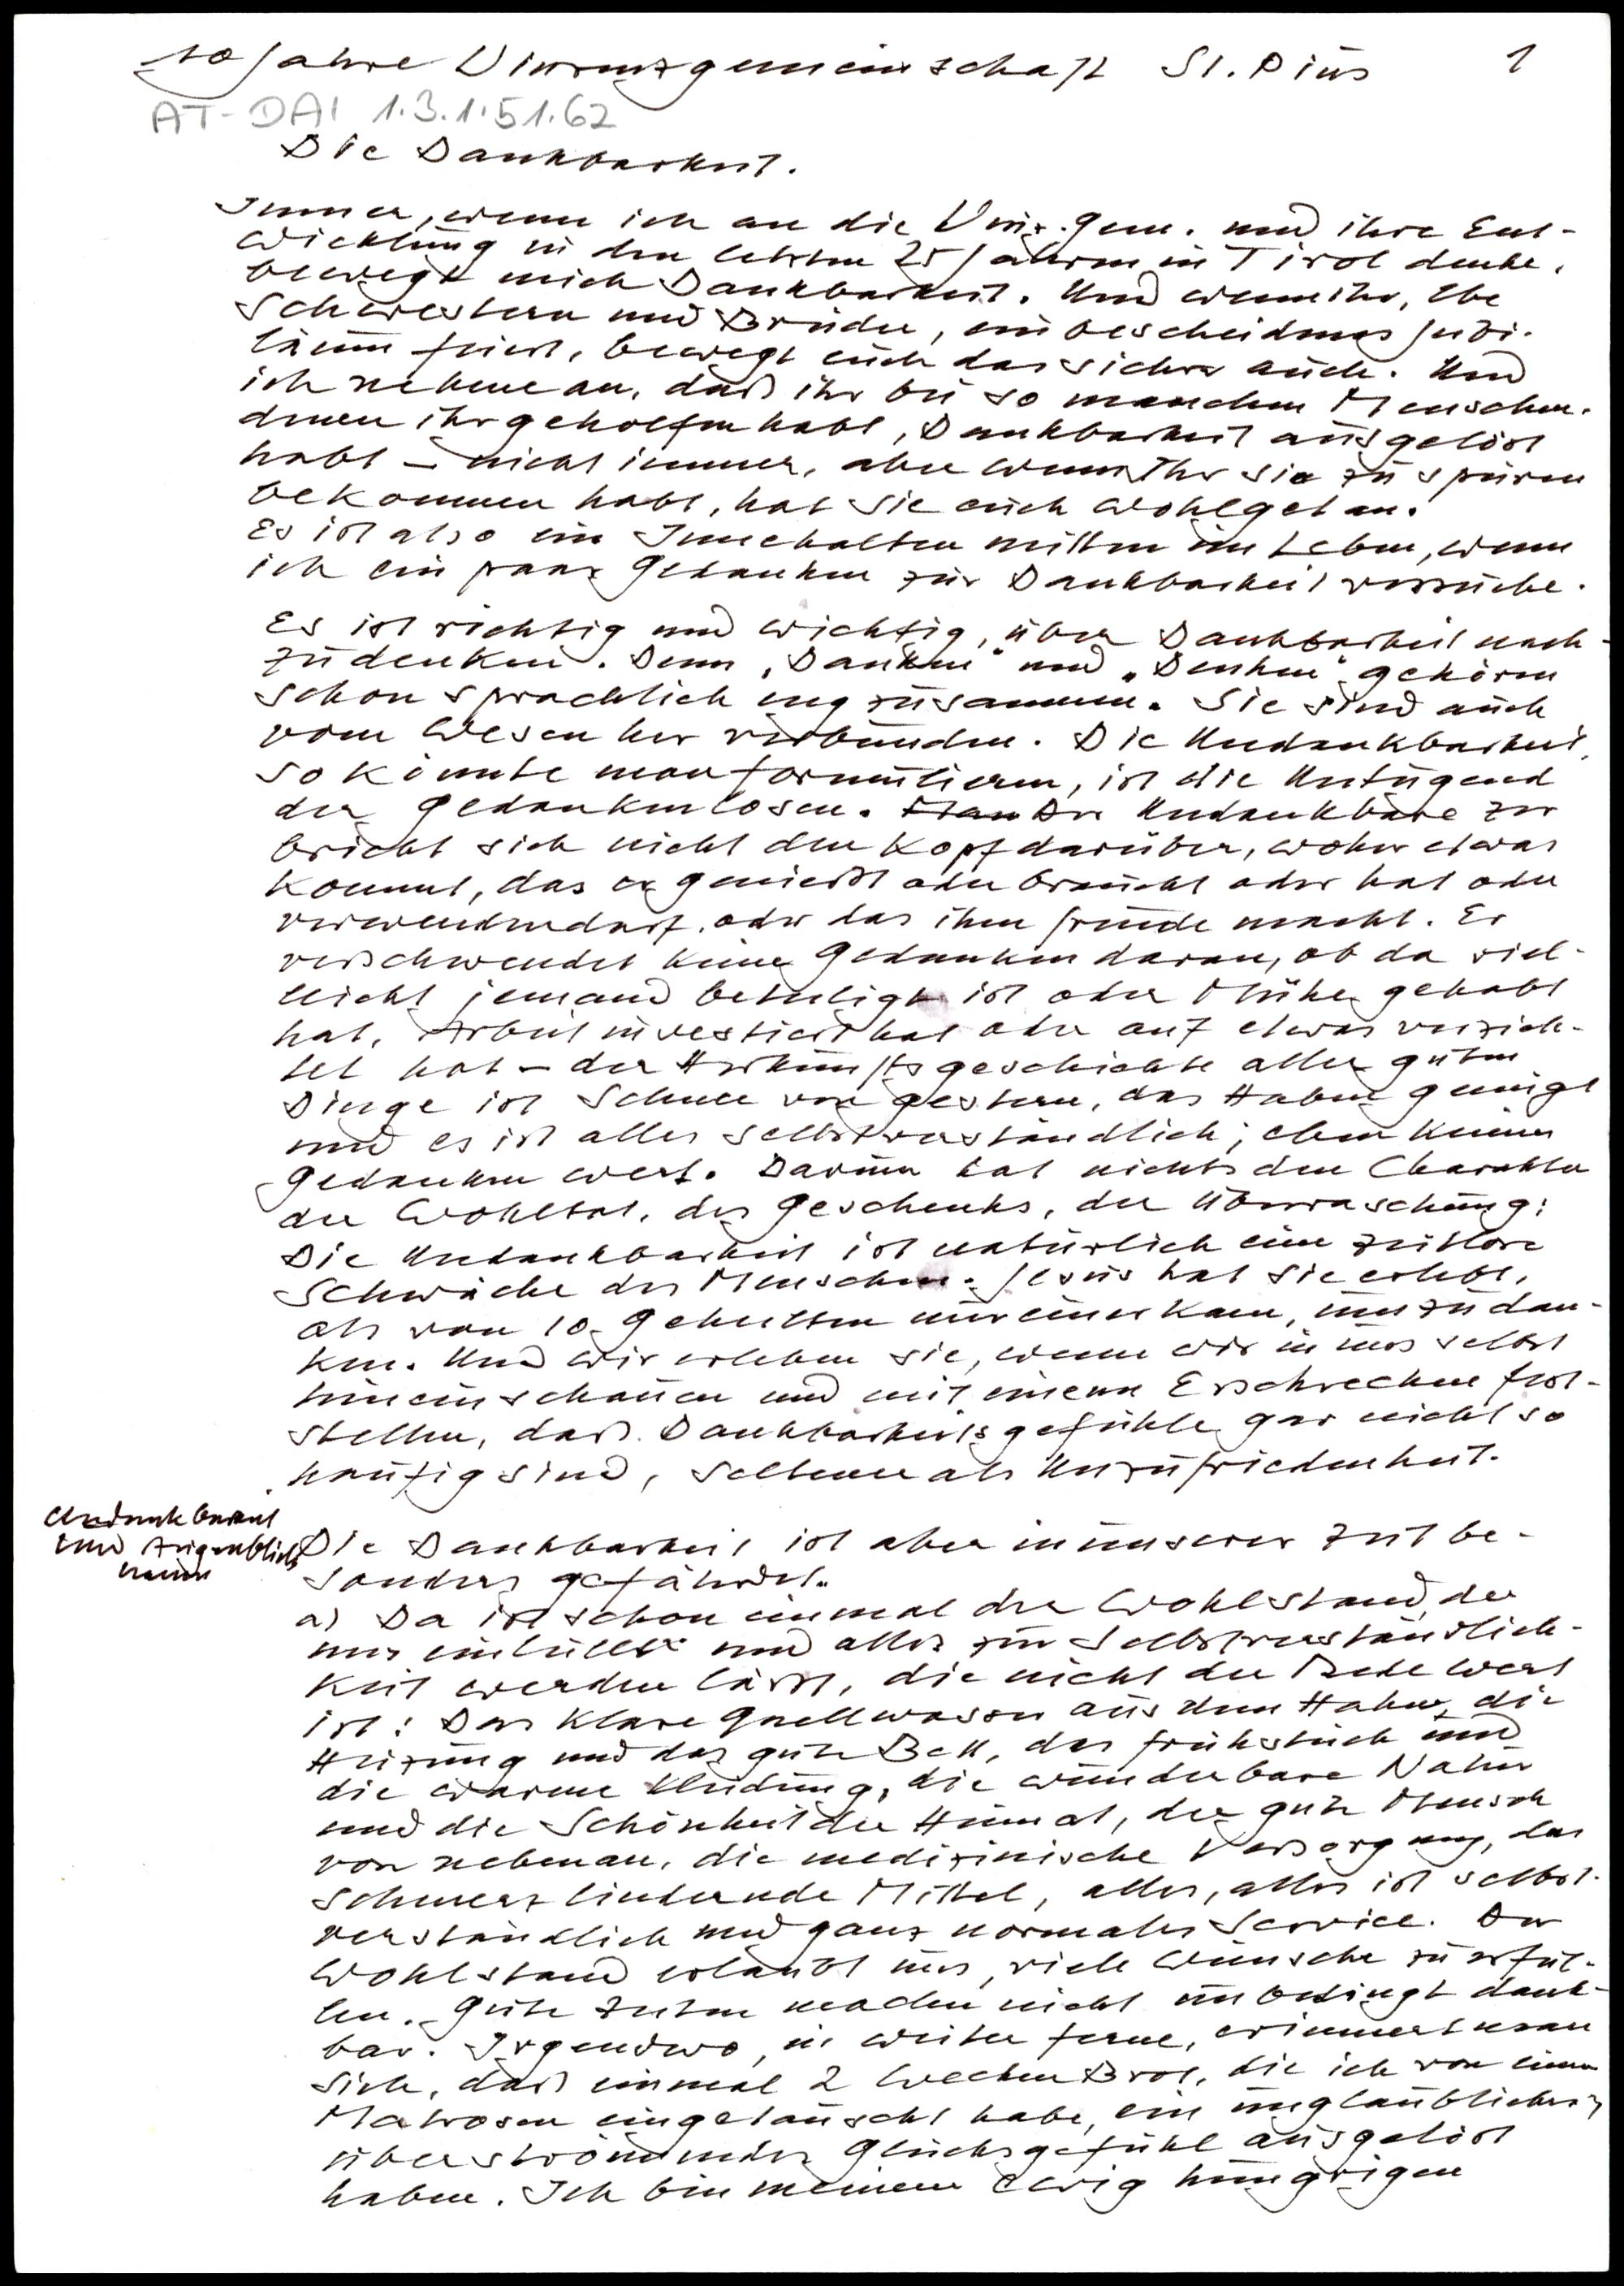 10 Jahre Vinzenzgemeinschaft St. Pius 1
AT-DAI 1.3.1.51.62
Die Dankbarkeit.
Immer, wenn ich an die Vinz. Gem. und ihre Ent-
wicklung in den letzten 25 Jahren in Tirol denke,
bewegt mich Dankbarkeit. Und wenn ihr, lbe
Schwestern und Brüder, ein bescheidenes Jubi-
läum feiert, bewegt euch das sicher auch. Und
ich nehme an, daß ihr bei so manchen Menschen,
denen ihr geholfen habt, Dankbarkeit ausgelöst
habt – nicht immer, aber wenn Ihr sie zu spüren
bekommen habt, hat sie euch wohlgetan.
Es ist also ein Innehalten mitten im Leben, wenn
ich ein paar Gedanken zur Dankbarkeit versuche.
Es ist richtig und wichtig, über Dankbarkeit nach-
zudenken. Denn „Danken" und „Denken" gehören
schon sprachlich eng zusammen. Sie sind auch
vom Wesen her verbunden. Die Undankbarkeit,
so könnte man formulieren, ist die Untugend
der Gedankenlosen. Man Der Undankbare zer
bricht sich nicht den Kopf darüber, woher etwas
kommt, das er genießt oder braucht oder hat oder
verwenden darf, oder das ihm Freude macht. Er
verschwendet keine Gedanken daran, ob da viel-
leicht jemand beteiligt ist oder Mühe gehabt
hat, Arbeit investiert hat oder auf etwas verzich-
tet hat – der Herkunftsgeschichte aller guten
Dinge ist Schnee von gestern, das Haben genügt
und es ist alles selbstverständlich, eben keinen
Gedanken wert. Darum hat nichts den Charakter
der Wohltat, des Geschenks, der Überraschung:
Die Undankbarkeit ist natürlich eine zeitlose
Schwäche des Menschen. Jesus hat sie erlebt,
als von 10 Geheilten nur einer kam, um zu dan-
ken. Und wir erleben sie, wenn wir in uns selbst
hineinschauen und mit einem Erschrecken fest-
stellen, daß Dankbarkeitsgefühle gar nicht so
häufig sind, seltener als Unzufriedenheit.
Undankbarkeit
und Augenblicks
Die Dankbarkeit ist aber in unserer Zeit be-
sonders gefährdet.
a) Da ist schon einmal der Wohlstand, der
uns einlullt und alles zur Selbstverständlich-
keit werden lässt, die nicht der Rede wert
ist: Das klare Quellwasser aus dem Hahn, die
Heizung und das gute Bett, das Frühstück und
die warme Kleidung, die wunderbare Natur
und die Schönheit der Heimat, der gute Mensch
von nebenan, die medizinische Versorgung, das
schmerzlindernde Mittel, alles, alles ist selbst-
verständlich und ganz normales Service. Der
Wohlstand erlaubt uns, viele Wünsche zu erfül-
len. Gute Zeiten machen nicht unbedingt dank-
bar. Irgendwo, in weiter Ferne, erinnert man
sich, daß einmal 2 Wecken Brot, die ich von einem
Matrosen eingetauscht habe, ein unglaubliches,
überströmendes Glücksgefühl ausgelöst
haben. Ich bin meinem ewig hungrigen